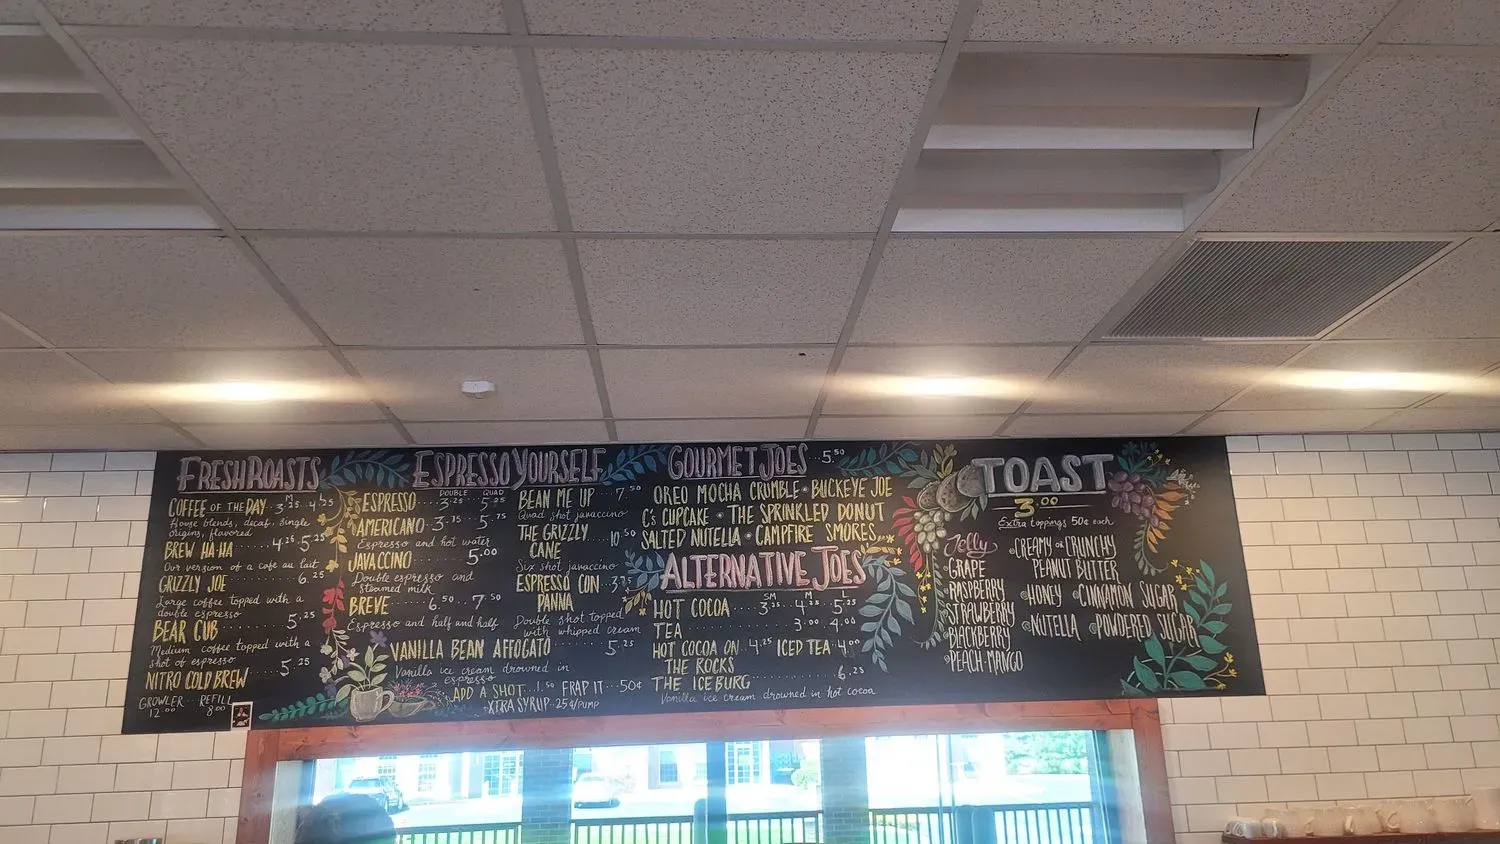 FRESH ROASTS
M L
COFFEE OF THE DAY 3.25 4.25
House blends, decaf, single
origins, flavored
BREW HA-HA 4.25 5.25
Our version of a cafe au lait
GRIZZLY JOE 6.25
Large coffee topped with a
double espresso
BEAR CUB 5.25
Medium coffee topped with a
shot of espresso
NITRO COLD BREW 5.25
GROWLER REFILL
12.00 8.00
ESPRESSO YOURSELF
DOUBLE QUAD
ESPRESSO 3.25 5.25
AMERICANO 3.75 5.75
Espresso and hot water
JAVACCINO 5.00
Double espresso and
steamed milk
BREVE 6.50 7.50
Espresso and half and half
VANILLA BEAN AFFOGATO 5.25
Vanilla ice cream drowned in
espresso
BEAN ME UP 7.50
Quad shot javaccino
THE GRIZZLY
CANE 10.50
Six shot javaccino
ESPRESSO CON 3.75
PANNA
Double shot topped
with whipped cream
ADD A SHOT 1.50 FRAP IT 50¢
XTRA SYRUP 25¢/PUMP
GOURMET JOES 5.50
OREO MOCHA CRUMBLE • BUCKEYE JOE
C's CUPCAKE • THE SPRINKLED DONUT
SALTED NUTELLA • CAMPFIRE SMORES
ALTERNATIVE JOES
SM M L
HOT COCOA 3.25 4.25 5.25
TEA 3.00 4.00
HOT COCOA ON 4.25 ICED TEA 4.00
THE ROCKS
THE ICEBURG 6.25
Vanilla ice cream drowned in hot cocoa
TOAST
3.00
Extra toppings 50¢ each
Jelly
GRAPE
RASPBERRY
STRAWBERRY
BLACKBERRY
PEACH MANGO
CREAMY OR CRUNCHY
PEANUT BUTTER
HONEY CINNAMON SUGAR
NUTELLA POWDERED SUGAR